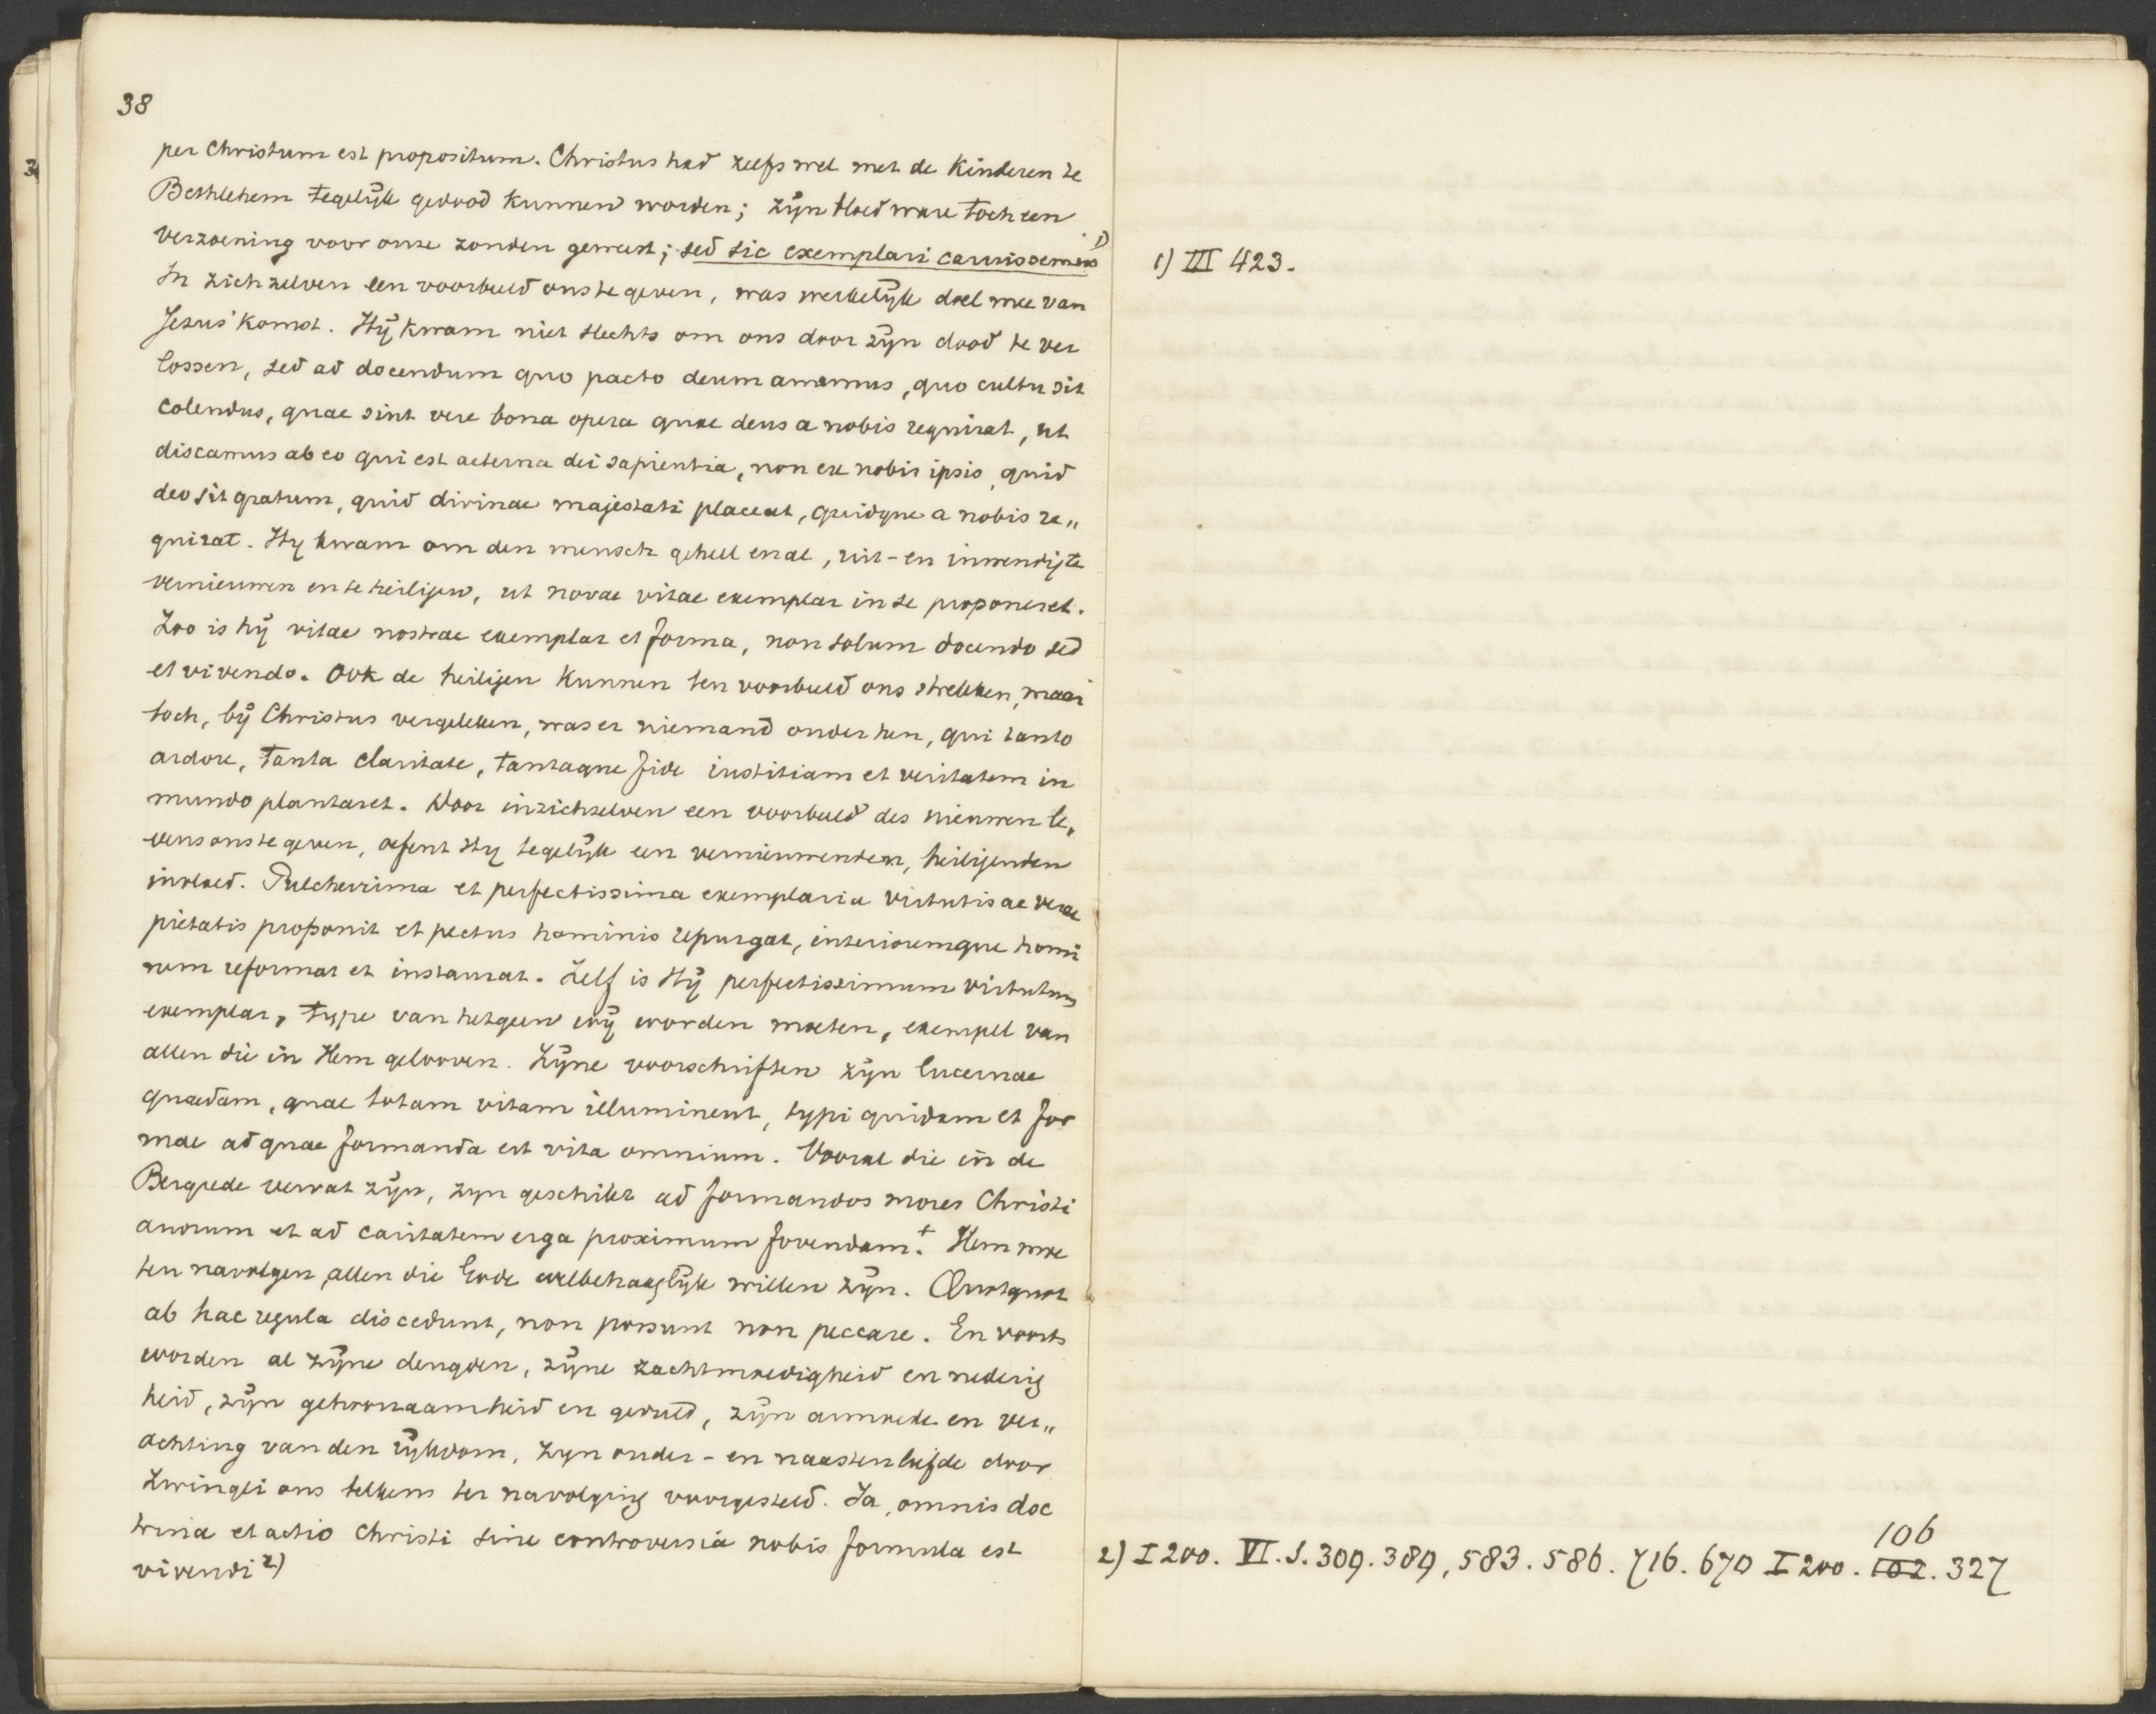 38
per Christum est propositum. Christus had zelfs wel met de kinderen te
Bethlehem tegelijk gedood kunnen worden; zijn bloed ware toch een
verzoening voor onze zonden geweest; sed sic exemplari caruissemus 1)
In zich zelven een voorbeeld ons te geven, was werkelijk doel mee van
Jezus' komst. Hij kwam niet slechts om ons door zijn dood te ver
lossen, sed ad docendum quo pacto deum amemus, quo cultu sit
colendus, quae sint vere bona opera quae deus a nobis requirat, ut
discamus ab eo qui est aeterna dei sapientia, non ex nobis ipsis, quid
deo sit gratum, quid divinae majestati placeat, quidque a nobis re„
quirat. Hy kwam om den mensch geheel en al, uit- en inwendig te
vernieuwen en te heiligen, ut novae vitae exemplar in se proponeret.
Zoo is hij vitae nostrae exemplar et forma, non solum docendo sed
et vivendo. Ook de heiligen kunnen ten voorbeeld ons strekken, maar
toch, bij Christus vergeleken, was er niemand onder hen, qui tanto
ardore, tanta claritate, tantaque fide iustitiam et veritatem in
mundo plantaret. Door in zichzelven een voorbeeld des nieuwen le„
vens ons te geven, oefent Hy tegelijk een vernieuwenden, heiligenden
invloed. Pulcherrima et perfectissima exemplaria virtutis ac verae
pietatis proponit et pectus hominis repurgat, interioremque homi
nem reformat et instaurat. Zelf is Hij perfectissimum virtutum
exemplar, type van hetgeen wij worden moeten, exempel van
allen die in Hem gelooven. Zijne voorschriften zijn lucernae
quaedam, quae totam vitam illuminent, typi quidam et for
mae ad quae formanda est vita omnium. Vooral die in de
Bergrede vervat zijn, zyn geschikt ad formandos mores Christi
anorum et ad caritatem erga proximum fovendam.+ Hem moe
ten navolgen allen die Gode welbehaaglijk willen zijn. Quotquot
ab hac regula discedunt, non possunt non peccare. En voorts
worden al zijne deugden, zijne zachtmoedigheid en nederig
heid, zijn gehoorzaamheid en geduld, zijn armoede en ver„
achting van den rijkdom, zyn ouder- en naastenliefde door
Zwingli ons telkens ter navolging voorgesteld. Ja, omnis doc
trina et actio Christi sine controversia nobis formula est
vivendi 2)
1) III 423.
106
2) I 200. VI. I. 309. 389, 583. 586. 716. 670 I 200. 102. 327